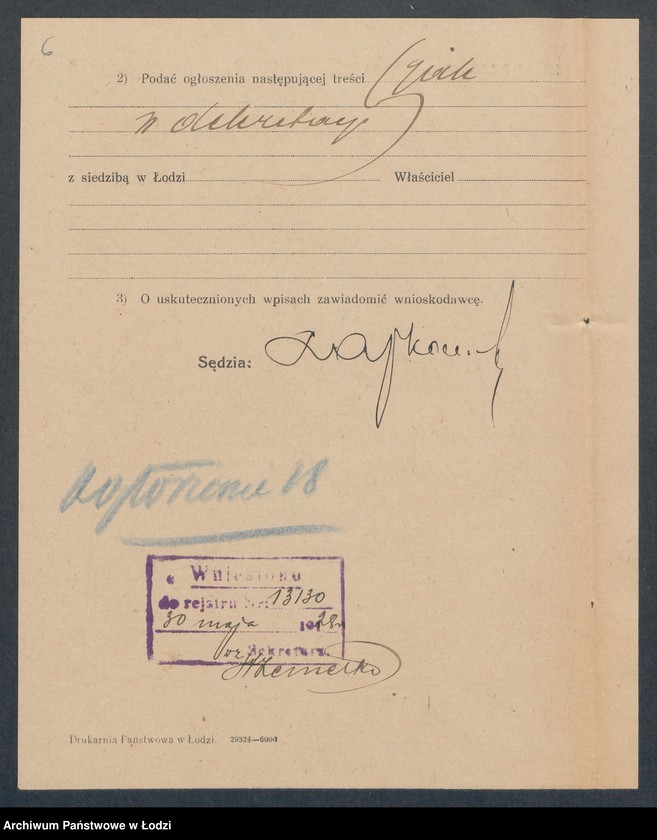 6
2) Podać ogłoszenia następującej treści (jak
w dekrecie)
z siedzibą w Łodzi Właściciel
3) O uskutecznionych wpisach zawiadomić wnioskodawcę.
Sędzia:
Wniesiono
do rejstru Nr. 13130
30 maja 1928 r.
wz. Sekretarz.
Drukarnia Państwowa w Łodzi. 29324—6000
Archiwum Państwowe w Łodzi